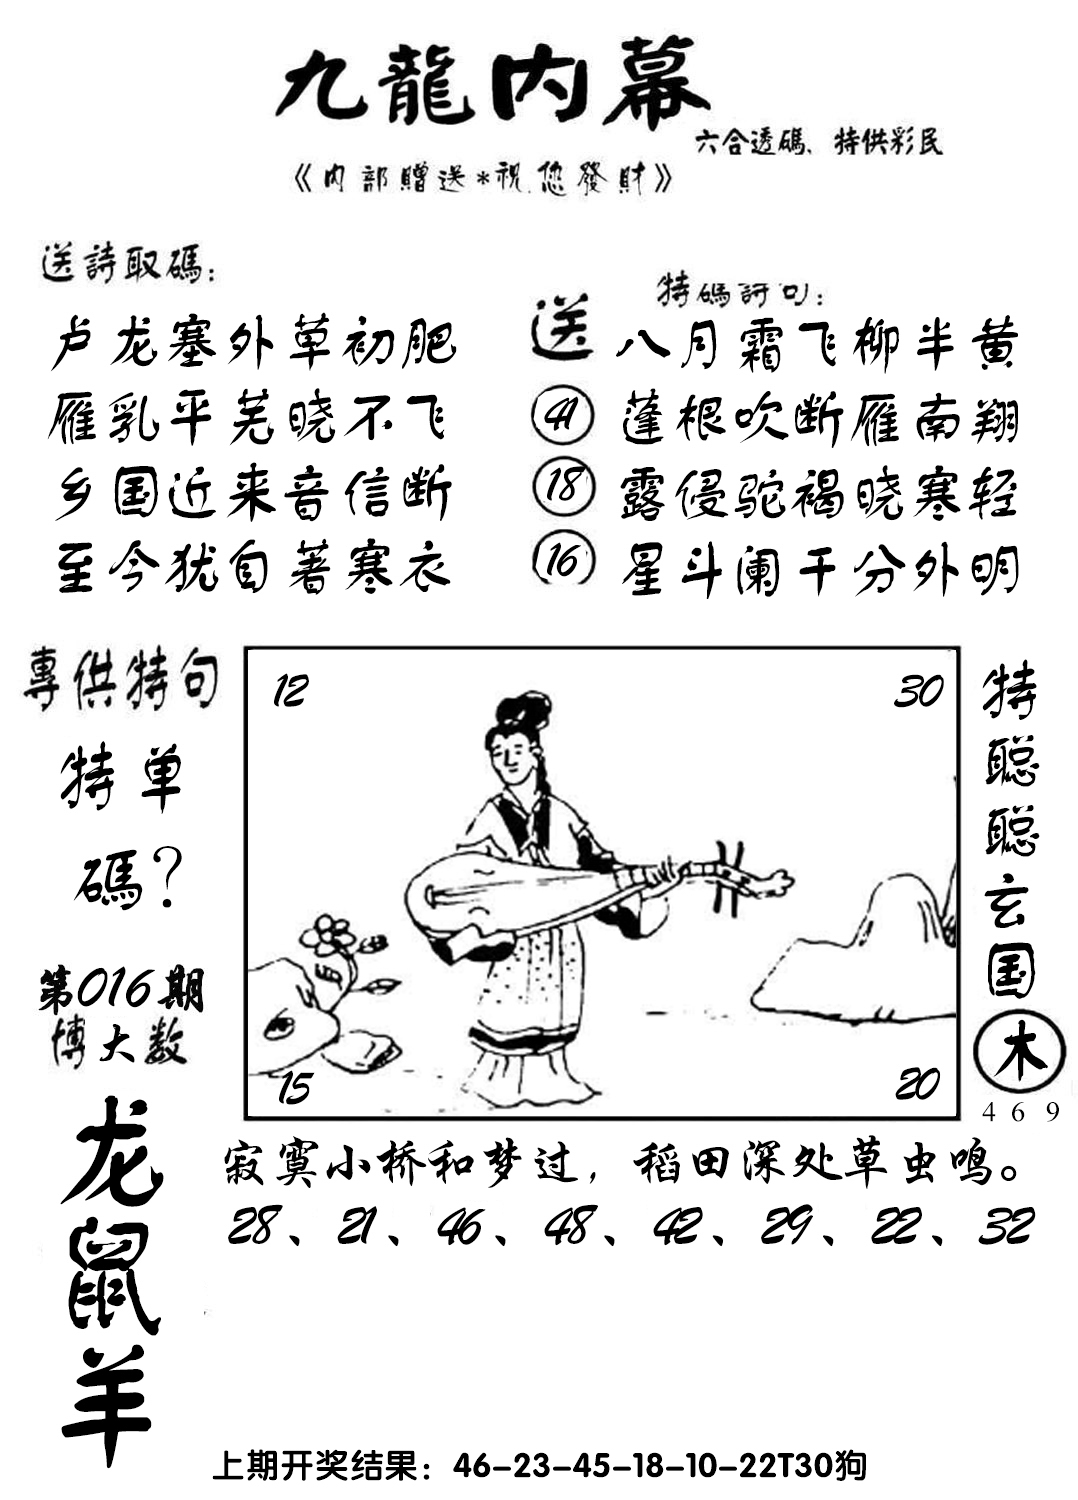 九龍内幕
六合透碼、特供彩民
《内部贈送*祝您發財》
送詩取碼：
卢龙塞外草初肥
雁乳平芜晓不飞
乡国近来音信断
至今犹自著寒衣
特碼詩句：
送
41
18
16
八月霜飞柳半黄
蓬根吹断雁南翔
露侵驼褐晓寒轻
星斗阑干分外明
專供特句
特单
碼？
第016期
博大数
龙
鼠
羊
12
30
15
20
特
聪
聪
玄
国
木
4 6 9
寂寞小桥和梦过，稻田深处草虫鸣。
28、21、46、48、42、29、22、32
上期开奖结果：46-23-45-18-10-22T30狗